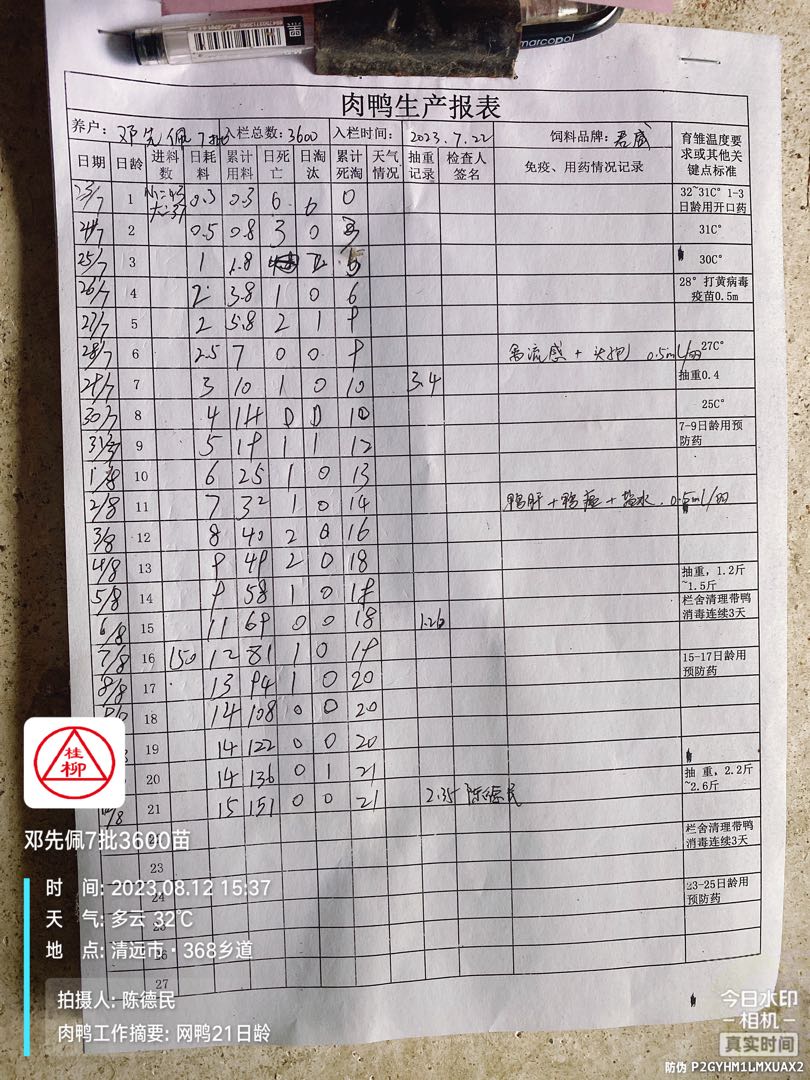 marcopol
肉鸭生产报表
养户: 邓先佩7批 入栏总数:3600 入栏时间: 2023.7.22 饲料品牌: 君威 育雏温度要求或其他关键点标准
日期 日龄 进料数 日耗料 累计用料 日死亡 日淘汰 累计死淘 天气情况 抽重记录 检查人签名 免疫、用药情况记录
23/7 1 0.3 0.3 6 6 0 32~31C° 1-3日龄用开口药
24/7 2 0.5 0.8 3 0 3 31C°
25/7 3 1 1.8 30C°
26/7 4 2 3.8 1 0 6 28° 打黄病毒疫苗0.5m
27/7 5 2 5.8 2 1 9
28/7 6 2.5 7 0 0 9 禽流感 + 0.5ml/ 27C°
29/7 7 3 10 1 0 10 3.4 抽重0.4
30/7 8 4 14 0 0 10 25C°
31/7 9 5 19 1 1 12 7-9日龄用预防药
1/8 10 6 25 1 0 13
2/8 11 7 32 1 0 14 鸭肝+鸭瘟+盐水 0.5ml/
3/8 12 8 40 2 0 16
4/8 13 9 49 2 0 18
5/8 14 9 58 1 0 18 抽重, 1.2斤~1.5斤
6/8 15 11 69 0 0 18 1.26 栏舍清理带鸭消毒连续3天
7/8 16 150 12 81 1 0 19
8/8 17 13 94 1 0 20 15-17日龄用预防药
18 14 108 0 0 20
19 14 122 0 0 20
20 14 136 0 1 21 抽 重, 2.2斤~2.6斤
21 15 151 0 0 21 2.35 陈德民
栏舍清理带鸭消毒连续3天
23
24 23-25日龄用预防药
25
26
27
桂柳
邓先佩7批3600苗
时 间: 2023.08.12 15:37
天 气: 多云 32℃
地 点: 清远市·368乡道
拍摄人: 陈德民
肉鸭工作摘要: 网鸭21日龄
今日水印
相机
真实时间
防伪 P2GYHM1LMXUAX2